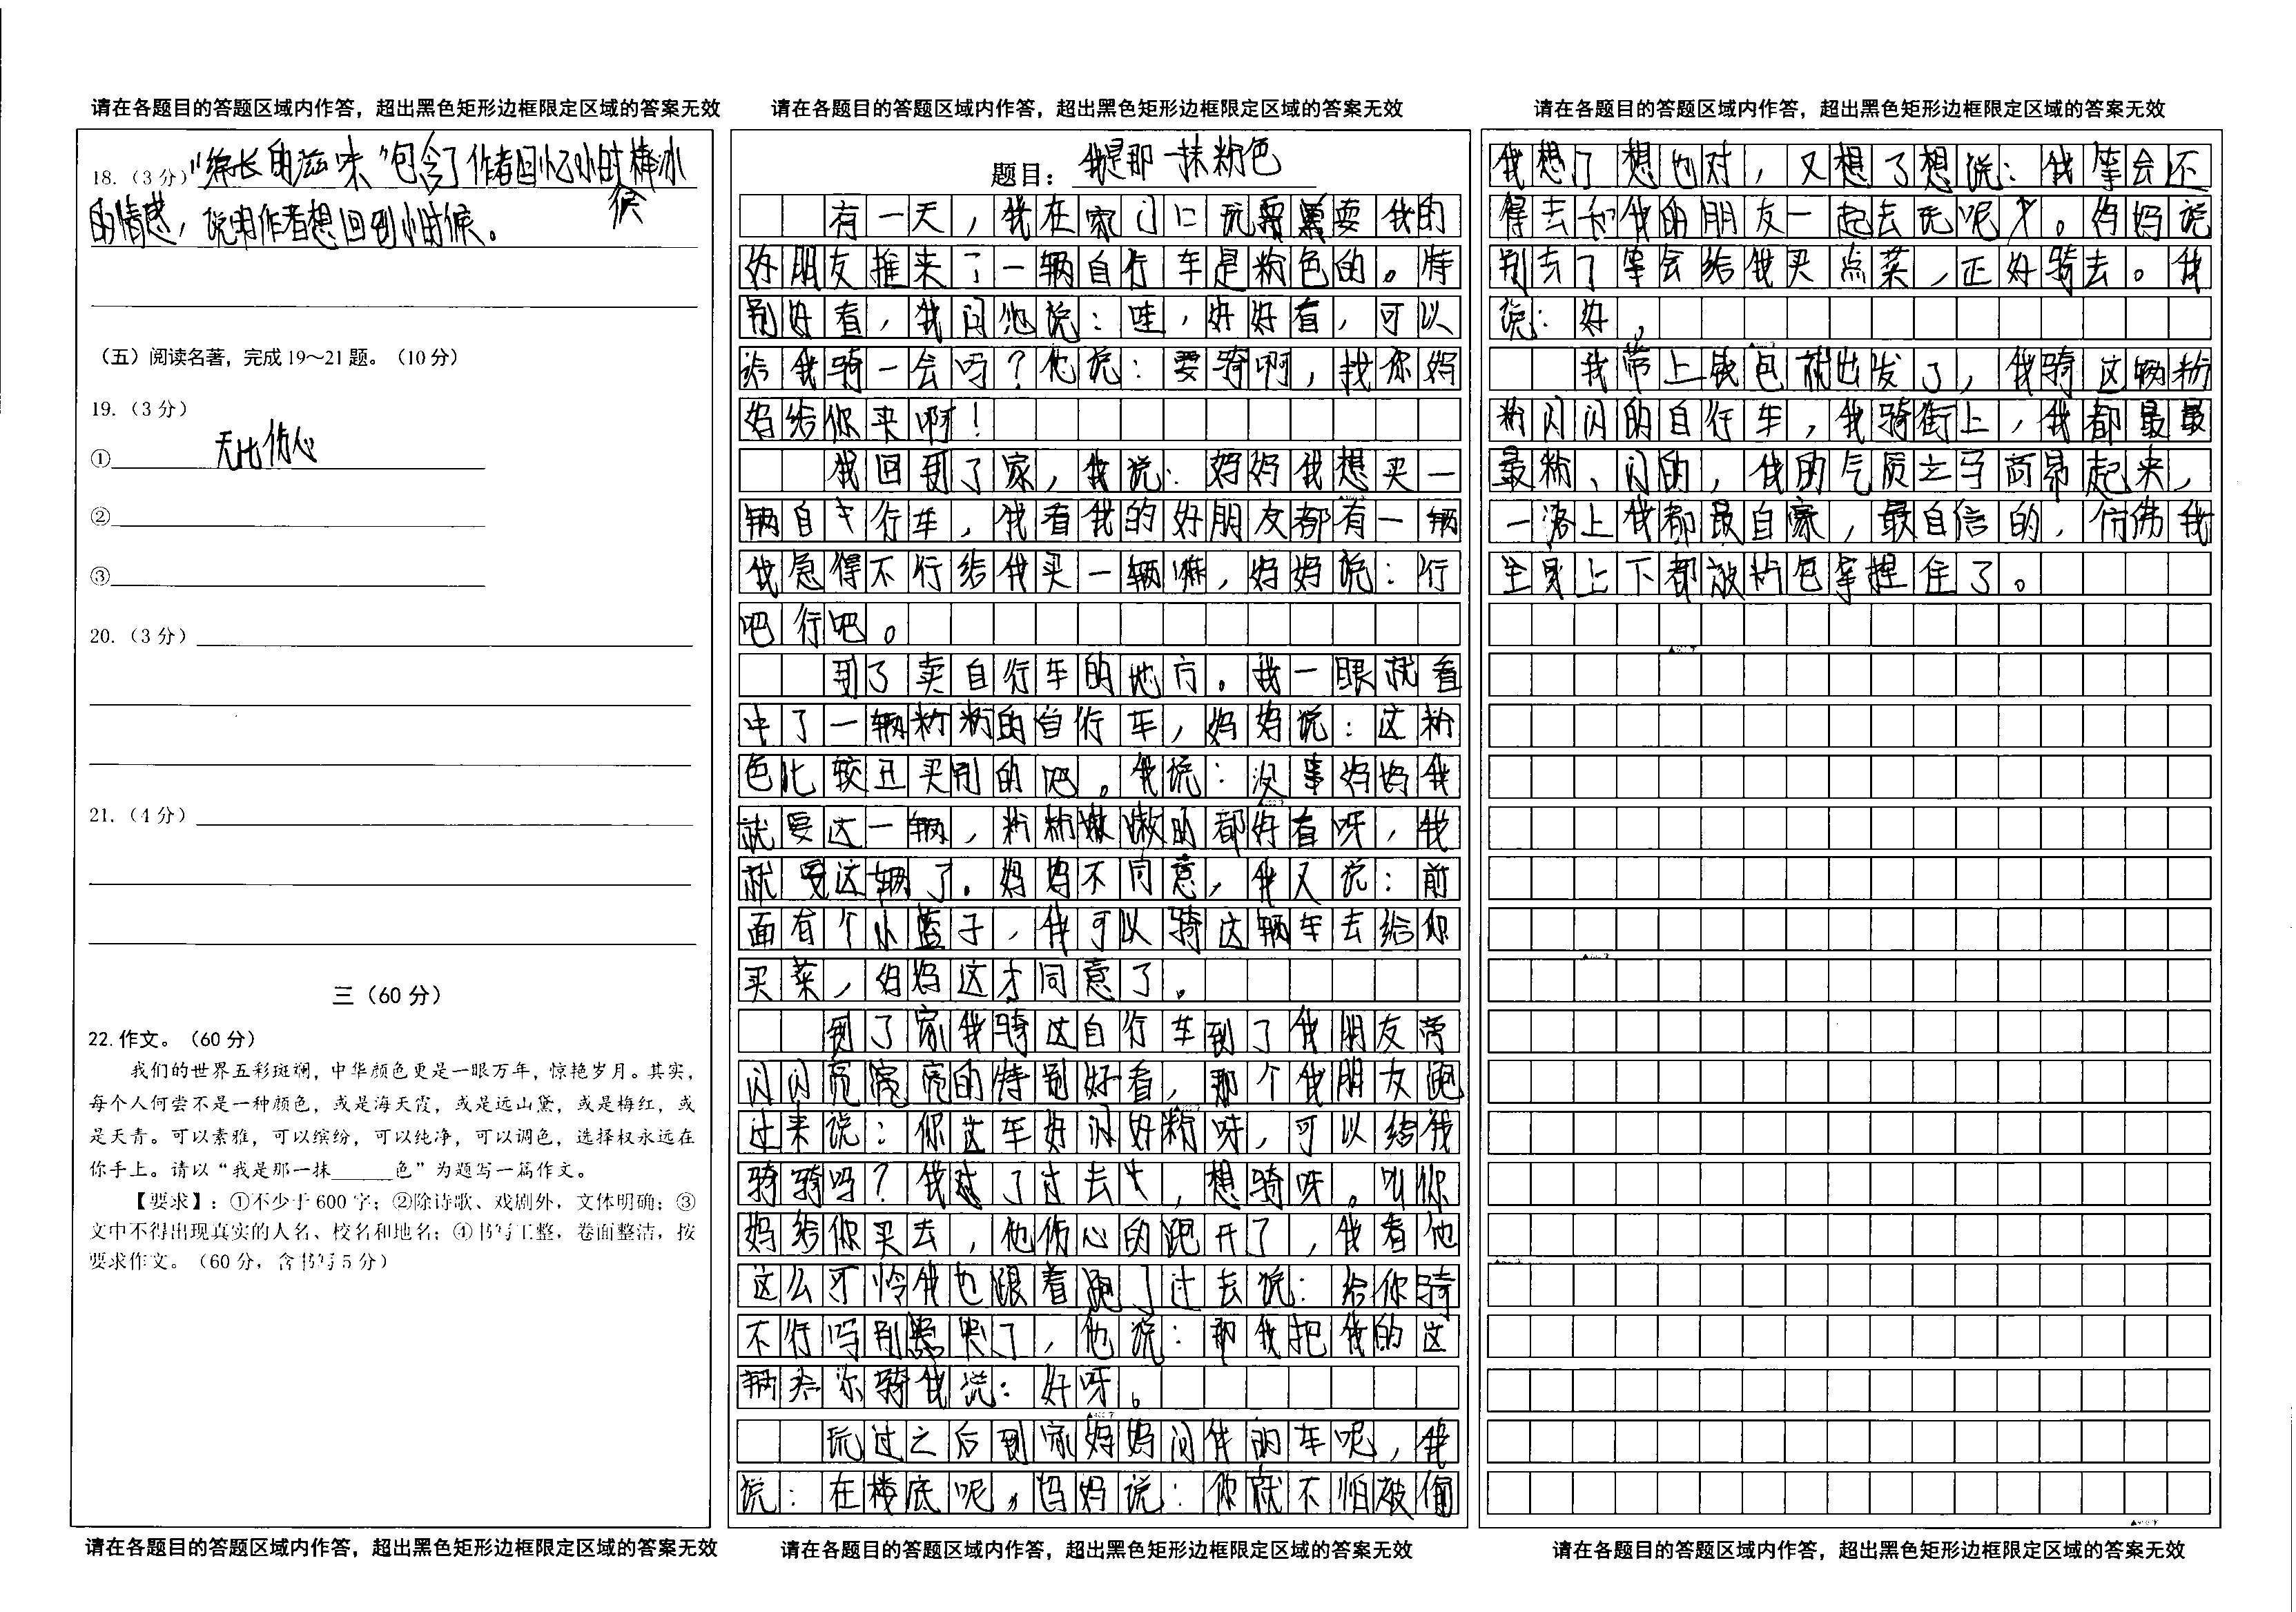 请在各题目的答题区域内作答，超出黑色矩形边框限定区域的答案无效
18.（3分）"绵长的滋味"包含了作者回忆小时候棒冰
的情感，说明作者想回到小时候。
（五）阅读名著，完成19～21题。（10分）
19.（3分）
① 无比伤心
②
③
20.（3分）
21.（4分）
三（60分）
22.作文。（60分）
我们的世界五彩斑斓，中华颜色更是一眼万年，惊艳岁月。其实，
每个人何尝不是一种颜色，或是海天霞，或是远山黛，或是梅红，或
是天青。可以素雅，可以缤纷，可以纯净，可以调色，选择权永远在
你手上。请以“我是那一抹______色”为题写一篇作文。
【要求】：①不少于600字；②除诗歌、戏剧外，文体明确；③
文中不得出现真实的人名、校名和地名；④书写工整，卷面整洁，按
要求作文。（60分，含书写5分）
请在各题目的答题区域内作答，超出黑色矩形边框限定区域的答案无效
请在各题目的答题区域内作答，超出黑色矩形边框限定区域的答案无效
题目：我是那一抹粉色
有一天，我在家门口玩耍我的
好朋友推来了一辆自行车是粉色的。特
别好看，我问他说：哇，好好看，可以
给我骑一会吗？他说：要骑啊，找你妈
妈给你买啊！
我回到了家，我说：妈妈我想买一
辆自行车，我看我的好朋友都有一辆
我急得不行给我买一辆嘛，妈妈说：行
吧行吧。
到了卖自行车的地方。我一眼就看
中了一辆粉粉的自行车，妈妈说：这粉
色比较丑买别的吧。我说：没事妈妈我
就要这一辆，粉粉嫩嫩的都好看呀，我
就要这辆了。妈妈不同意，我又说：前
面有个小蓝子，我可以骑这辆车去给你
买菜，妈妈这才同意了。
到了家我骑这自行车到了我朋友旁
闪闪亮亮的特别好看，那个我朋友跑
过来说：你这车好闪好粉呀，可以给我
骑骑吗？我过了过去，想骑呀。叫你
妈给你买去，他伤心的跑开了，我看他
这么可怜我也跟着跑了过去说：给你骑
不行吗别哭了，他说：那我把我的这
辆给你骑我说：好呀。
玩过之后到家妈妈问我的车呢，我
说：在楼底呢，妈妈说：你就不怕被偷
请在各题目的答题区域内作答，超出黑色矩形边框限定区域的答案无效
请在各题目的答题区域内作答，超出黑色矩形边框限定区域的答案无效
我想了想也对，又想了想说：我等会还
得去和我的朋友一起去玩呢。妈妈说
别去了等会给我买点菜，正好骑去。我
说：好，
我带上钱包就出发了，我骑这辆粉
粉闪闪的自行车，我骑街上，我都最最
最粉、闪的，我的气质立马高昂起来，
一路上我都最自豪，最自信的，仿佛我
全身上下都被粉色拿捏住了。
请在各题目的答题区域内作答，超出黑色矩形边框限定区域的答案无效